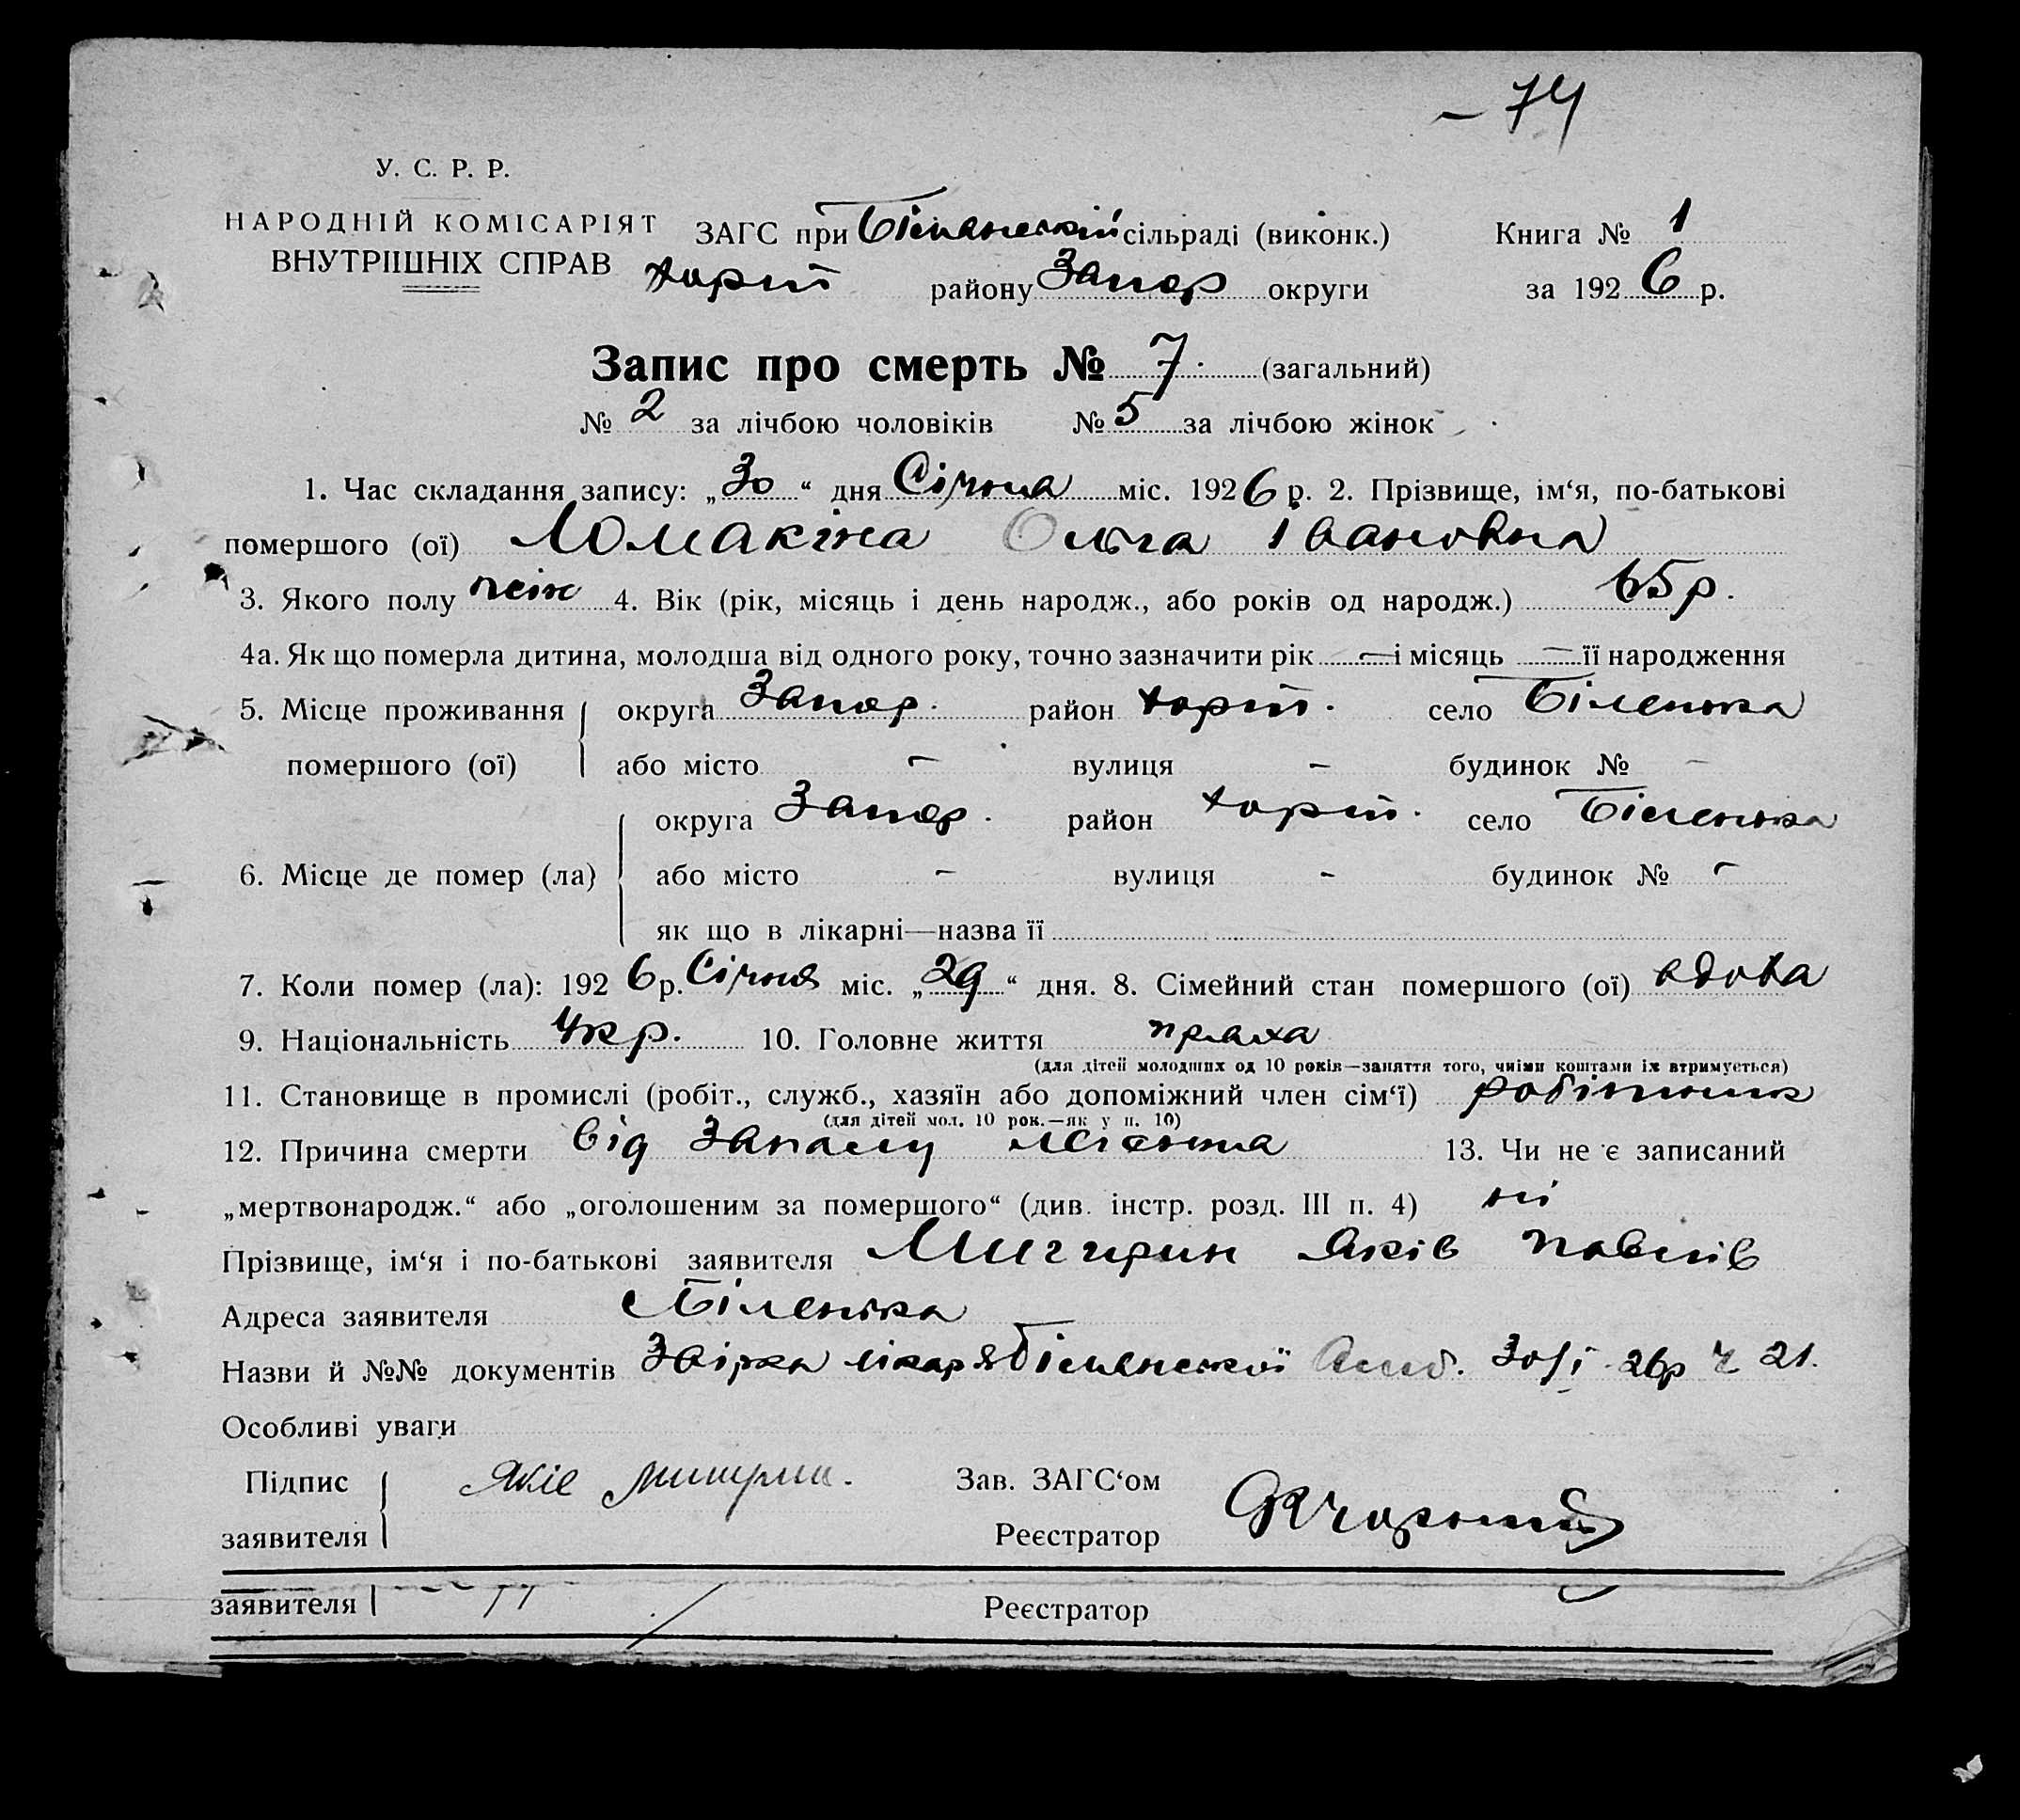 – 74
У. С. Р. Р.
НАРОДНІЙ КОМІСАРІЯТ
ВНУТРІШНІХ СПРАВ
ЗАГС при Біленській сільраді (виконк.) Книга № 1
Хорт району Запор округи за 192 6 р.
Запис про смерть № 7. (загальний)
№ 2 за лічбою чоловіків № 5 за лічбою жінок
1. Час складання запису: „30“ дня Січня міс. 1926 р. 2. Прізвище, ім‘я, по-батькові
помершого (ої) Ломакіна Ольга Івановна
3. Якого полу жін 4. Вік (рік, місяць і день народж., або років од народж.) 65 р.
4а. Як що померла дитина, молодша від одного року, точно зазначити рік — і місяць — її народження
5. Місце проживання округа Запор. район Хорт. село Біленька
помершого (ої) або місто – вулиця – будинок № –
округа Запор. район Хорт. село Біленька
6. Місце де помер (ла) або місто – вулиця – будинок № –
як що в лікарні—назва її
7. Коли помер (ла): 192 6 р. Січня міс. „29“ дня. 8. Сімейний стан помершого (ої) вдова
9. Національність Укр. 10. Головне життя пряха
(для дітей молодших од 10 років—заняття того, чиїми коштами їх втримується)
11. Становище в промислі (робіт., служб., хазяїн або допоміжний член сім‘ї) робітник
(для дітей мол. 10 рок.—як у п. 10)
12. Причина смерти від запалу 13. Чи не є записаний
„мертвонародж.“ або „оголошеним за помершого“ (див. інстр. розд. III п. 4) ні
Прізвище, ім‘я і по-батькові заявителя Мигирин Яків Павлів
Адреса заявителя с Біленька
Назви й №№ документів Звірка лікаря Біленської Амб. 30/I 26р ч 21.
Особливі уваги
Підпис Яків Мигирин. Зав. ЗАГС‘ом
заявителя Реєстратор
заявителя Реєстратор